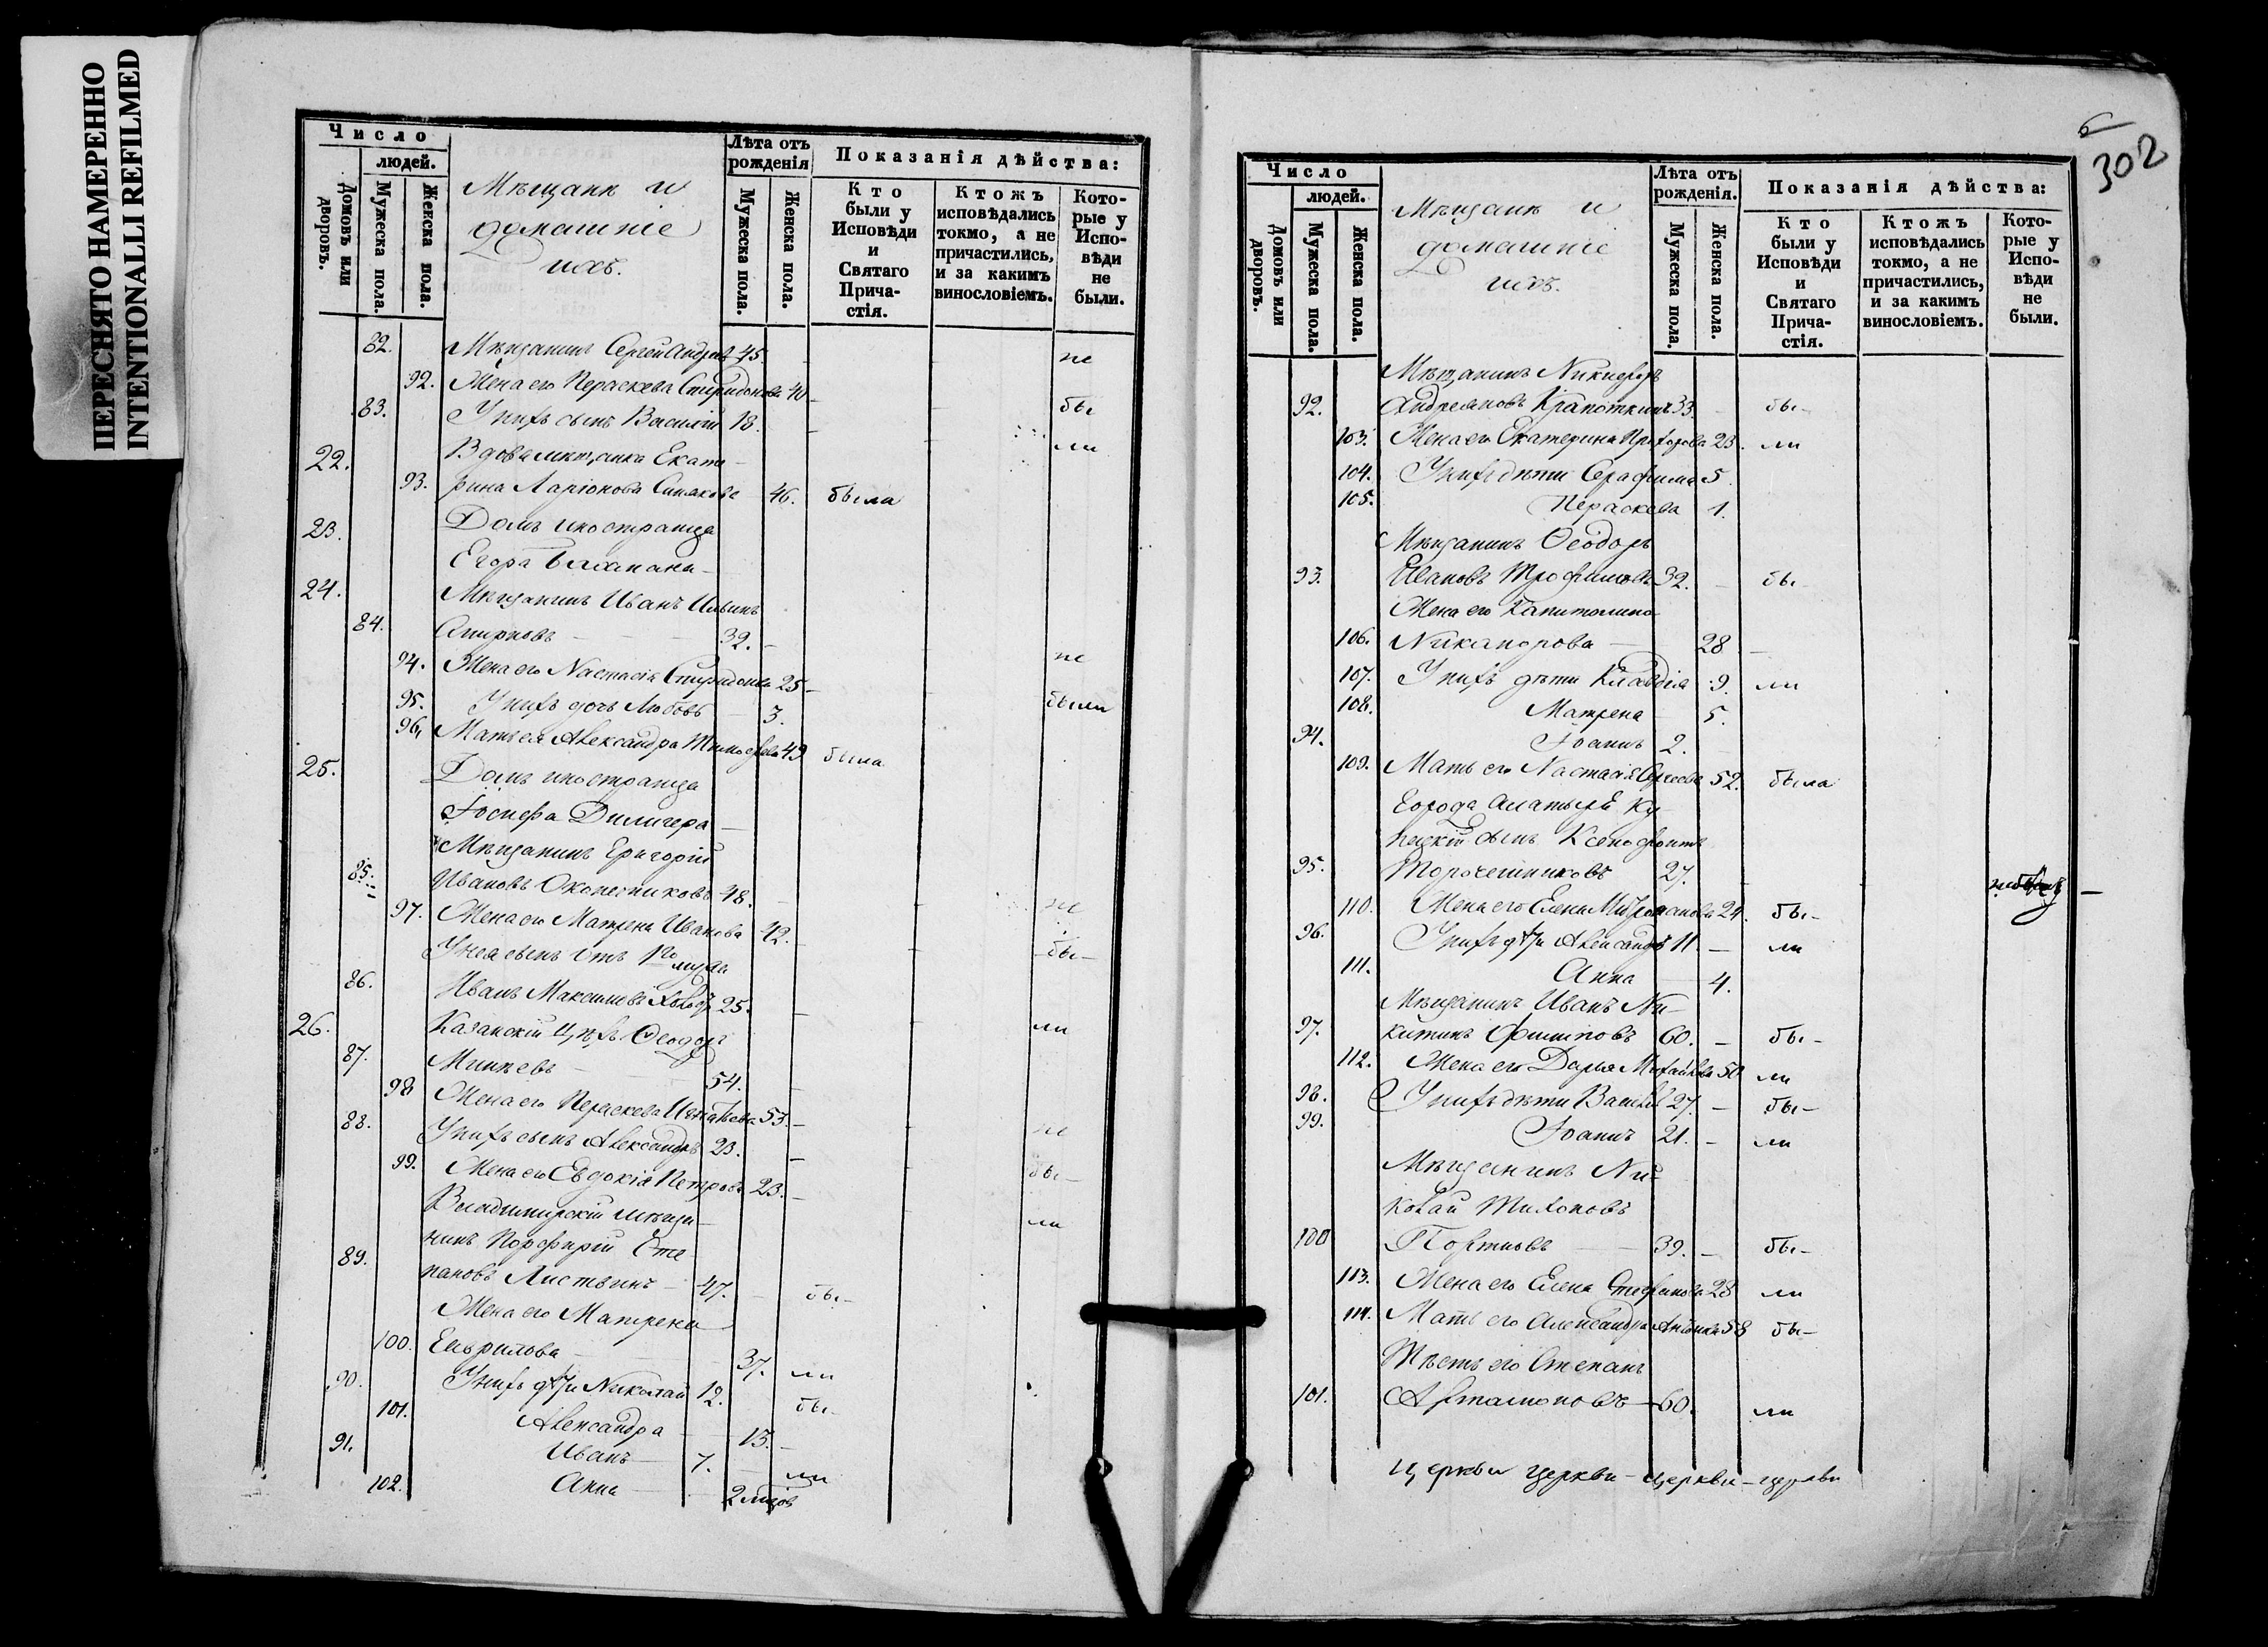 ПЕРЕСНЯТО НАМЕРЕННО
INTENTIONALLI REFILMED
Число
людей.
Домовъ или дворовъ.
Мужеска пола.
Женска пола.
Мѣщане и
домашніе
ихъ.
Лѣта отъ
рожденія
Мужеска пола.
Женска пола.
Показанія дѣйства:
Кто
были у
Исповѣди
и
Святаго
Прича-
стія.
Ктожъ
исповѣдались
токмо, а не
причастились,
и за какимъ
винословіемъ.
Кото-
рые у
Испо-
вѣди
не
были.
82. Мѣщанинъ Сергей Андреевъ 45. не
92. Жена его Параскева Спиридонова 40
83. У нихъ сынъ Василій 18. бы
22. Вдова мѣщанка Екате- ли
93. рина Ларіонова 46. была
23. Домъ иностранца
Егора
24. Мѣщанинъ Иванъ Ильинъ
84. Смирновъ 32.
94. Жена его Настасія Спиридонова 25 не
95. У нихъ дочь Любовь 3. были
96. Мать ея Александра Тимофеева 49 была
25. Домъ иностранца
Іосифа Дилигера
Мѣщанинъ Григорій
85. Ивановъ 48.
97. Жена его Матрена Иванова 42. не
У нея сынъ отъ 1го мужа бы-
86. Иванъ Максимовъ 25.
26. Казанскій Ѳеодоръ ли
87. Минѣевъ 54.
98 Жена его Параскева Игнатьева 53.
88. У нихъ сынъ Александръ 23. не
99. Жена его Евдокія Петрова 23. бы-
Владимирскій мѣща-
нинъ Порфирій Сте ли
89. пановъ Листвинъ 47. бы-
Жена его Матрена
100. Гаврилова 37. ли
90. У нихъ дѣти Николай 12. бы-
101. Александра 13.
91. Иванъ 7. ли
102. Анна 2 мѣсяцов
302
Число
людей.
Домовъ или дворовъ.
Мужеска пола.
Женска пола.
Мѣщане и
домашніе
ихъ.
Лѣта отъ
рожденія.
Мужеска пола.
Женска пола.
Показанія дѣйства:
Кто
были у
Исповѣди
и
Святаго
Прича-
стія.
Ктожъ
исповѣдались
токмо, а не
причастились,
и за какимъ
винословіемъ.
Кото-
рые у
Испо-
вѣди
не
были.
Мѣщанинъ Никифоръ
92. Андреяновъ Крапоткинъ 33. бы-
103. Жена его Екатерина Прохорова 23. ли
104. У нихъ дѣти Серафима 5.
105. Параскева 1.
Мѣщанинъ Ѳеодоръ
93. Ивановъ Трофимовъ 32. бы-
Жена его Капитолина
106. Никандрова 28
107. У нихъ дѣти Клавдія 9. ли
108. Матрена 5.
94. Іоаннъ 2.
109. Мать его Настасія Сергеева 52. была
Города Алатыря Ку-
пецкій сынъ Ксенофонтъ
95. 27.
110. Жена его Елена Митрофанова 24. бы-
96. У нихъ дѣти Александръ 11. ли
111. Анна 4.
Мѣщанинъ Иванъ Ни-
97. китинъ Филиповъ 60. бы-
112. Жена его Дарья Михайлова 50 ли
98. У нихъ дѣти Василій 27. бы-
99. Іоаннъ 21. ли
Мѣщанинъ Ни-
колай Тихоновъ
100 Портновъ 39. бы-
113. Жена его Елена Стефанова 28 ли
114. Мать его Александра 58 бы-
Тесть его Степанъ
101. Артамоновъ 60. ли
церкви церкви - церкви - церкви